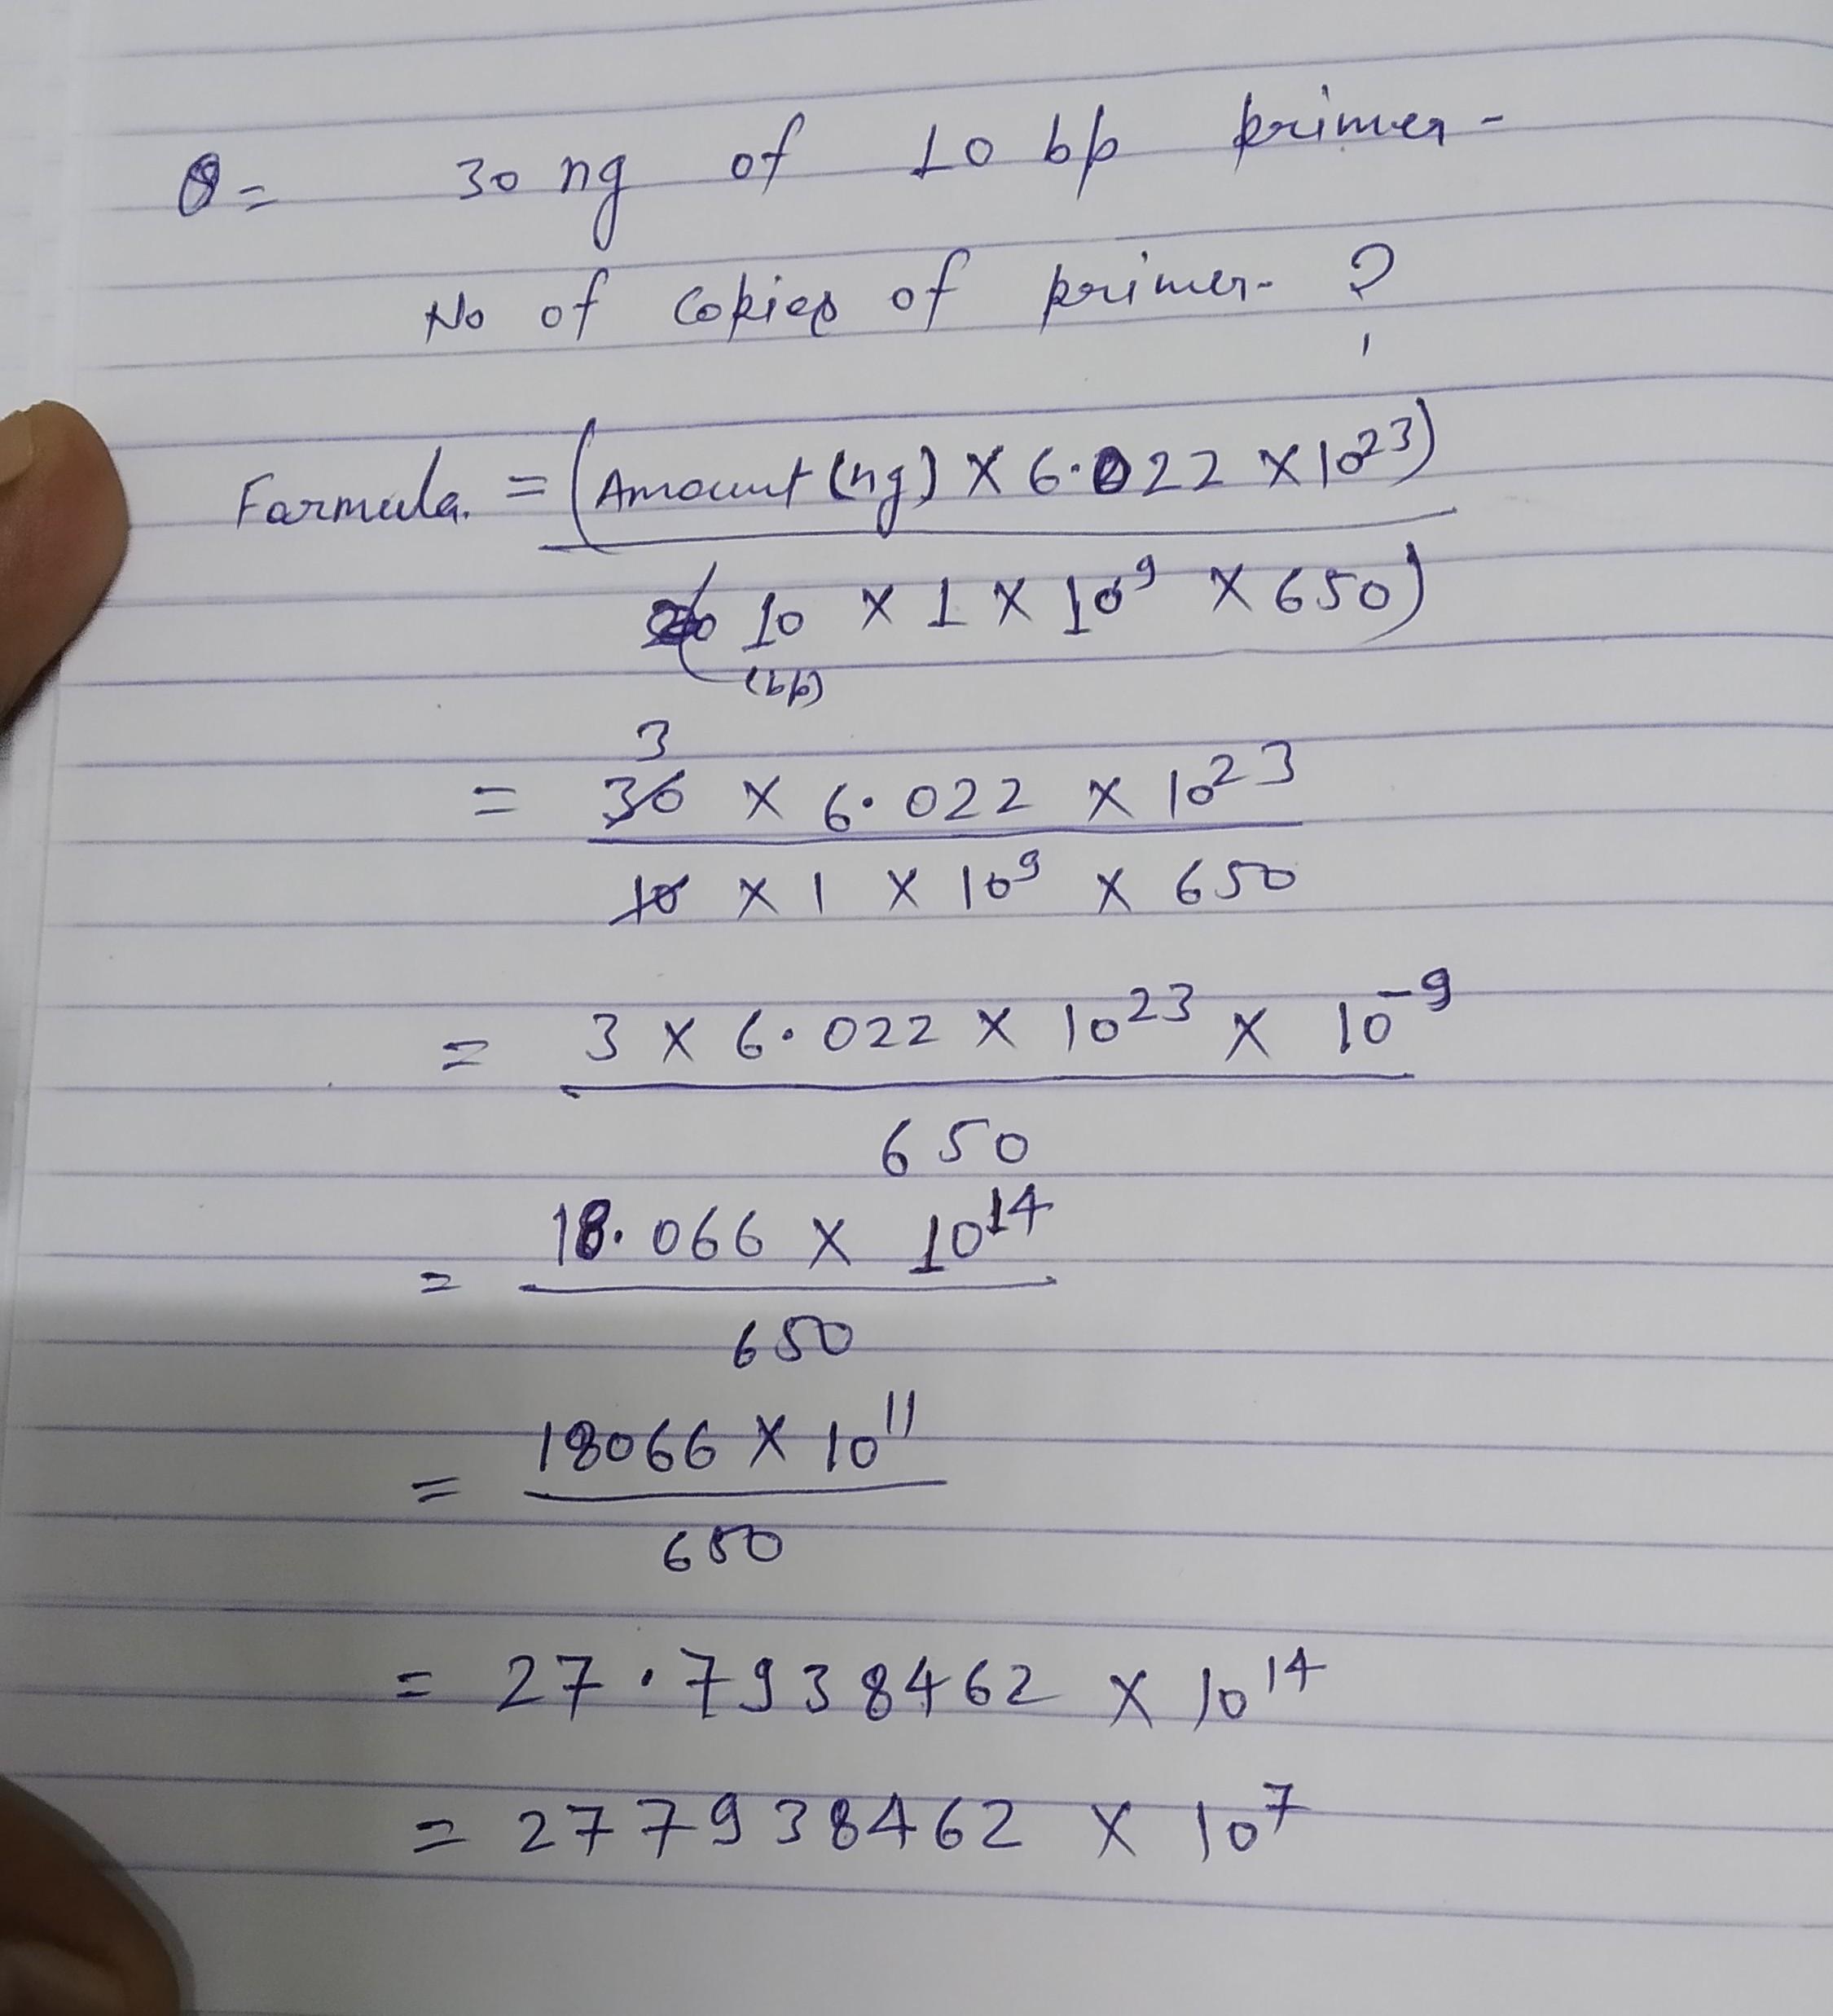 Q= 30 ng of 10 bp primer-
No of copies of primer- ?
Formula. = (Amount (ng) X 6.022 X 10^23)
10 X 1 X 10^9 X 650)
(bp)
3
= 30 X 6.022 X 10^23
10 X 1 X 10^9 X 650
= 3 X 6.022 X 10^23 X 10^-9
650
= 18.066 X 10^14
650
= 18066 X 10^11
650
= 27.7938462 X 10^14
= 277938462 X 10^7